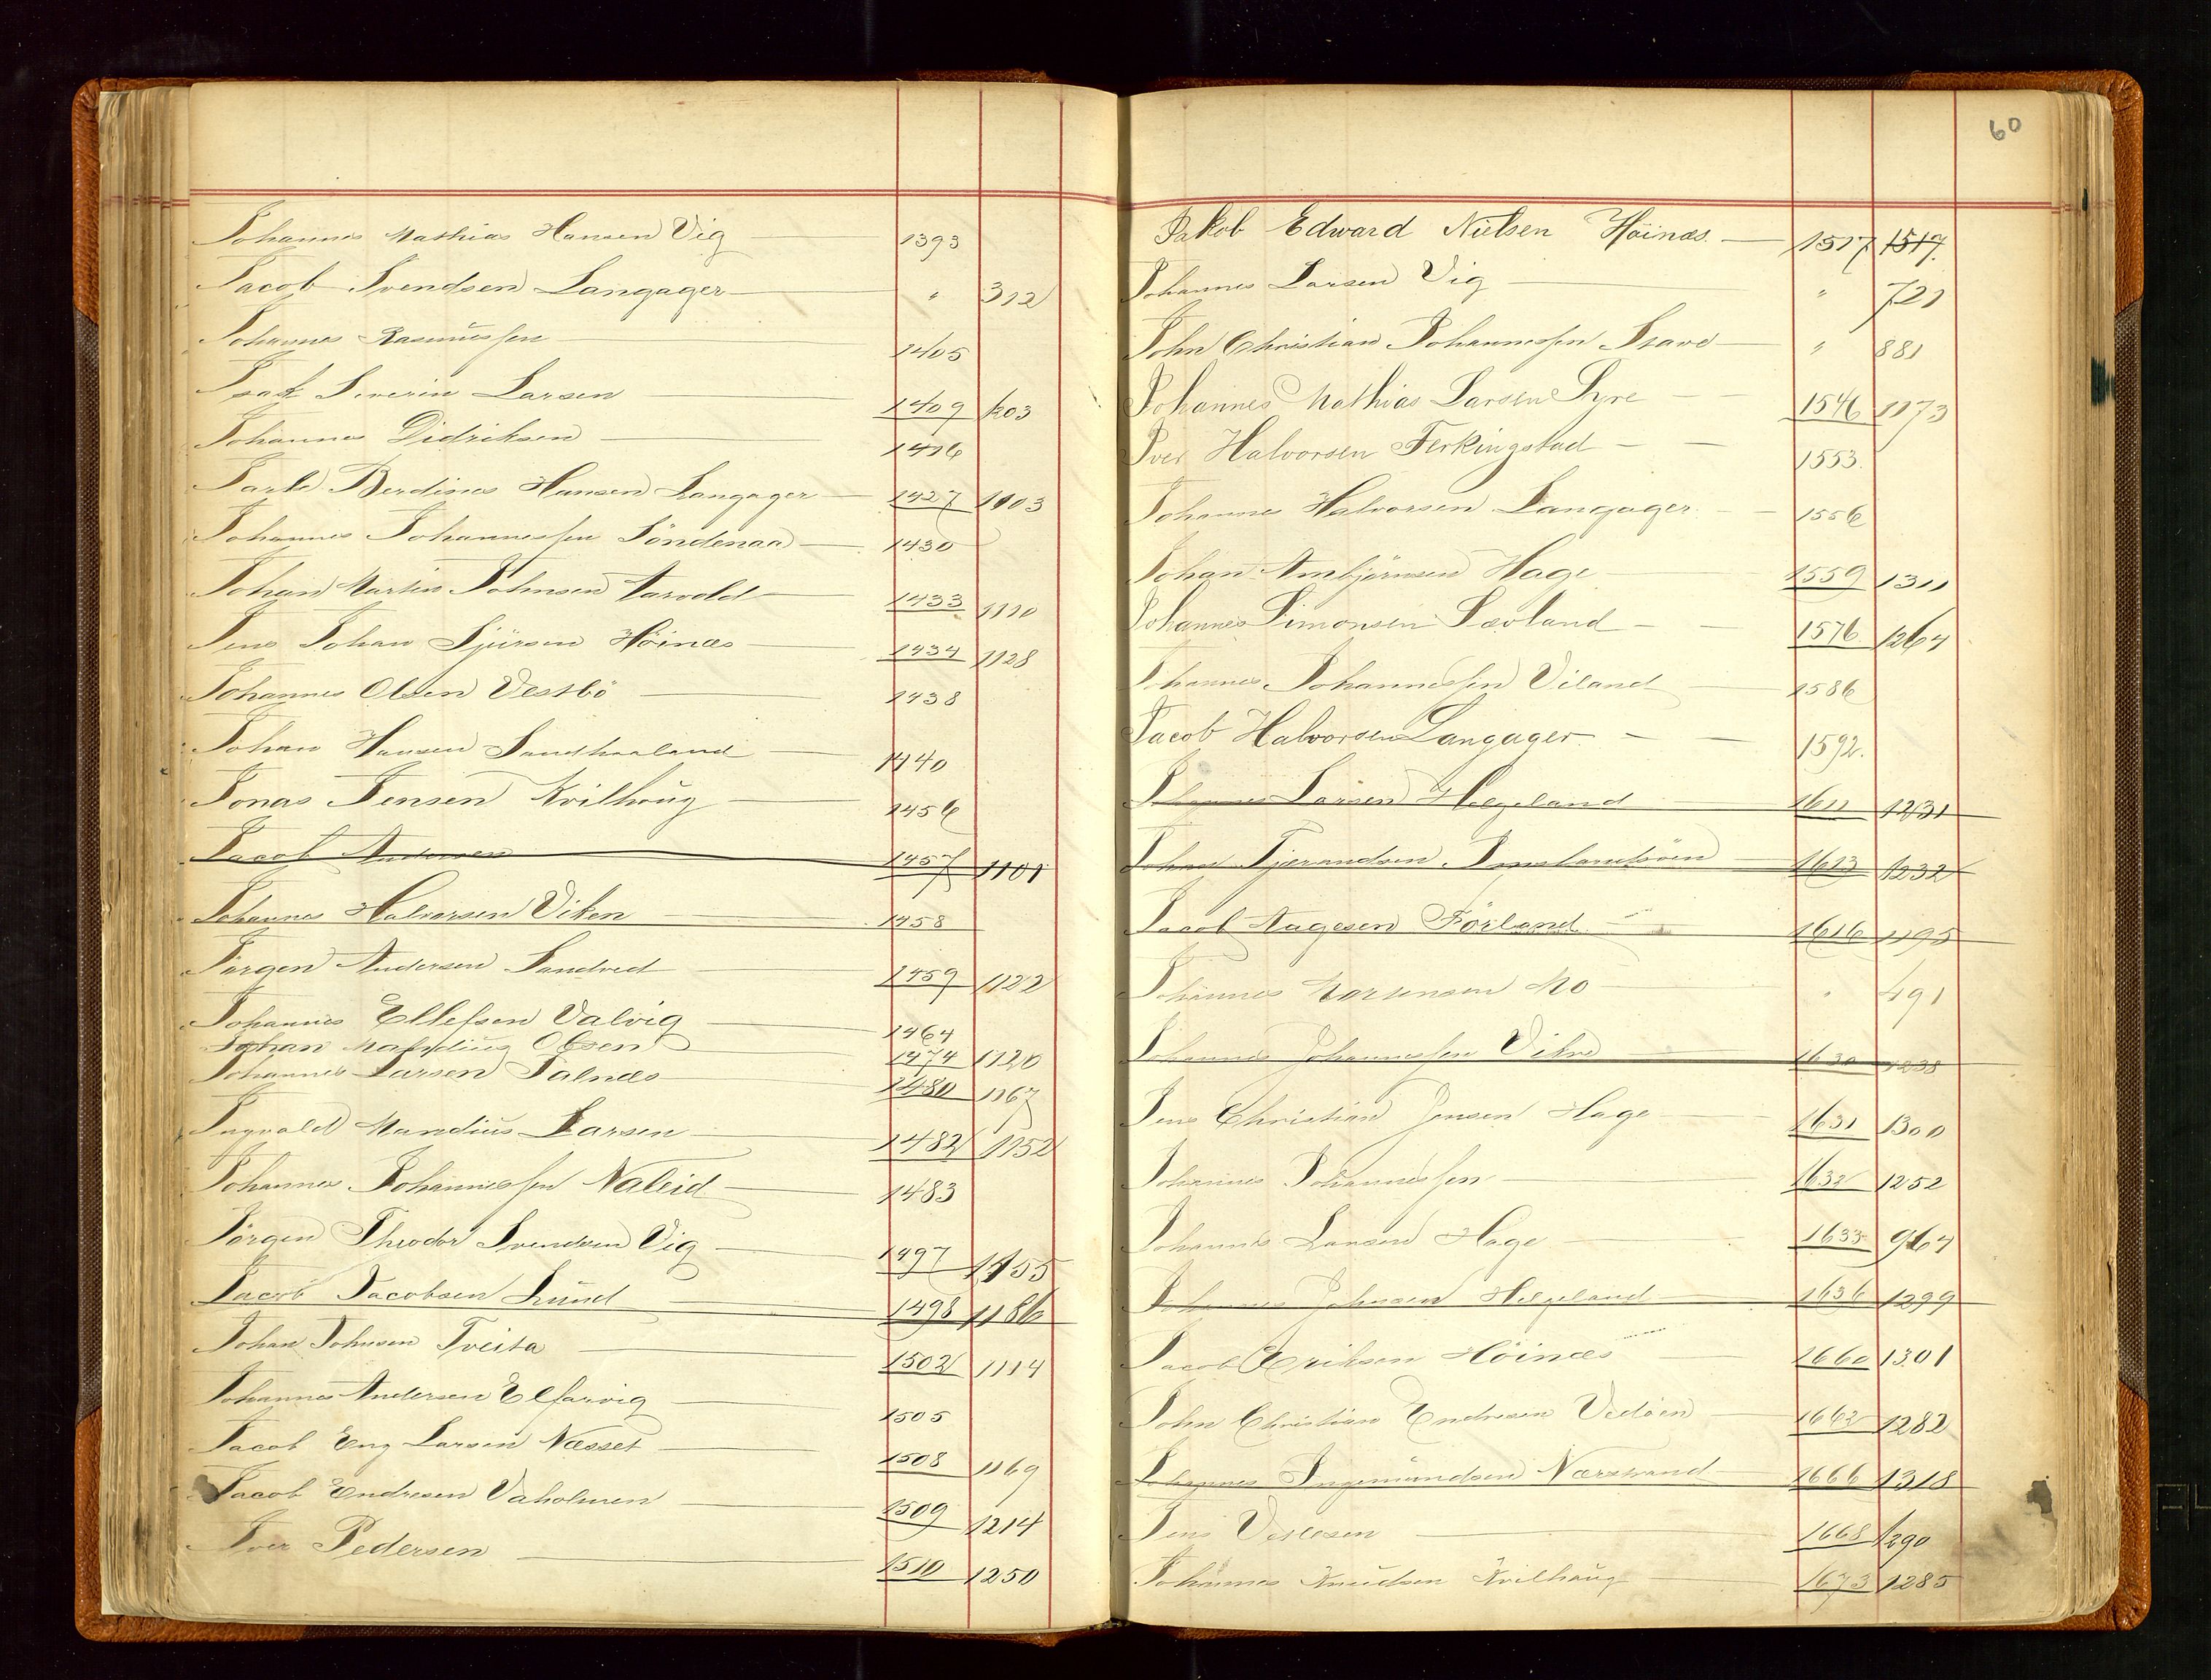 Johannes Mathias Hansen Vig — 1393
Jacob Svendsen Langager — " 312
Johannes Rasmussen — 1405
Isak Severin Larsen — 1409 1203
Johannes Didriksen — 1416
Jarle Berdines Hansen Langager — 1427 1103
Johannes Johannessen Söndenaa — 1430
Johan Martin Johnsen Aarvold — 1433 1110
Jens Johan Sjursen Höinæs — 1434 1128
Johannes Olsen Vestbö — 1438
Johan Hansen Sandhaaland — 1440
Jonas Jensen Kvilhoug — 1456
Jacob Andersen — 1457 1101
Johannes Halvorsen Viken — 1458
Jörgen Andersen Sandved — 1459 1122
Johannes Ellefsen Valvig — 1464
Johan Mandius Olsen — 1474 1120
Johannes Larsen Salnæs — 1480 1167
Ingvald Mandius Larsen — 1482 1152
Johannes Johannessen Naleid — 1483
Jörgen Theodor Svendsen Vig — 1497 1155
Jacob Jacobsen Lund — 1498 1186
Johan Johnsen Tveita — 1502 1114
Johannes Andersen Elfarvig — 1505
Jacob Eng Larsen Næsset — 1508 1169
Jacob Endresen Vaholmen — 1509 1214
Iver Pedersen — 1510 1250
60
Jakob Edward Nielsen Höinæs — 1517 1517
Johannes Larsen Vig — " 721
John Christian Johannessen Stave — " 881
Johannes Mathias Larsen Syre — 1546 1173
Iver Halvorsen Ferkingstad — 1553
Johannes Halvorsen Langager — 1556
Johan Ambjörnsen Hage — 1559 1311
Johannes Simonsen Sævland — 1576 1264
Johannes Johannessen Viland — 1586
Jacob Halvorsen Langager — 1592
Johannes Larsen Helgeland — 1611 1231
Johan Tjerandsen Imslandsöen — 1613 1232
Jacob Aagesen Förland — 1616 1195
Johannes Mo — " 491
Johannes Johannessen Vikre — 1630 1238
Jens Christian Jensen Hage — 1631 1300
Johannes Johannessen — 1632 1252
Johannes Larsen Hage — 1633 964
Johannes Johnsen Helgeland — 1636 1299
Jacob Eriksen Höinæs — 1660 1301
John Christian Endresen Vedöen — 1662 1282
Johannes Ingemundsen Nærstrand — 1666 1318
Jens — 1668 1290
Johannes Knudsen Kvilhaug — 1673 1285